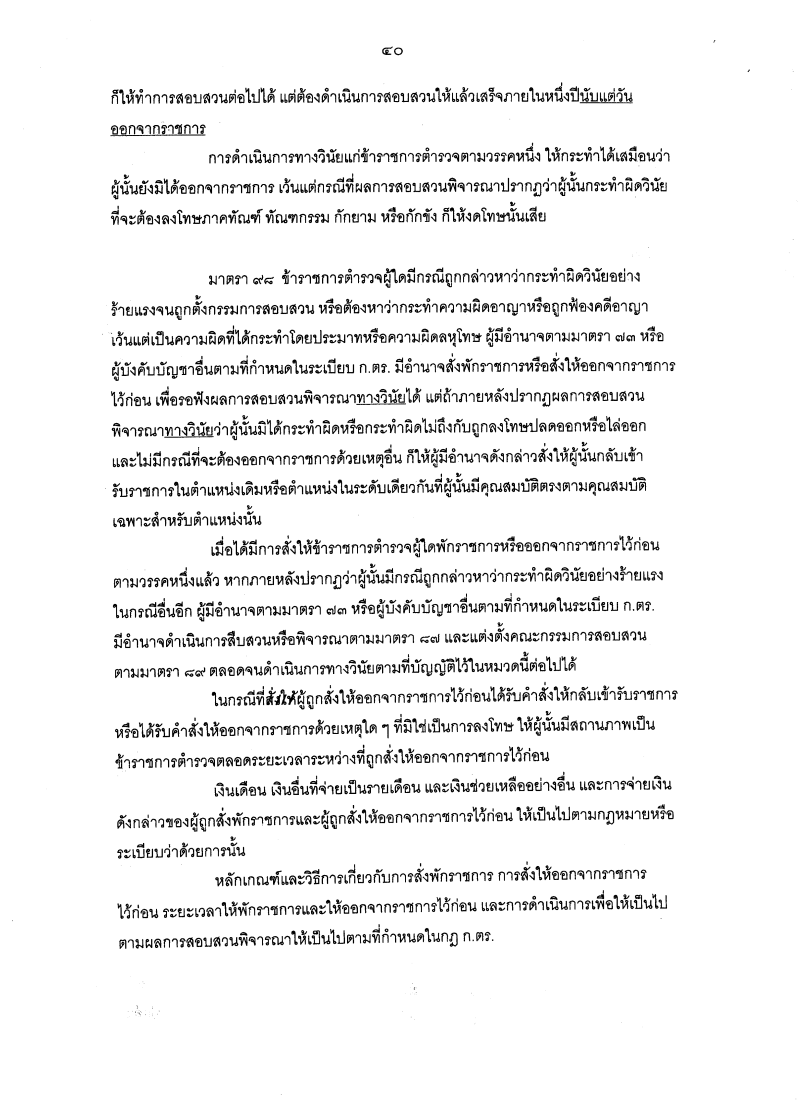 ๔๐
ก็ให้ทำการสอบสวนต่อไปได้ แต่ต้องดำเนินการสอบสวนให้แล้วเสร็จภายในหนึ่งปีนับแต่วัน
ออกจากราชการ
การดำเนินการทางวินัยแก่ข้าราชการตำรวจตามวรรคหนึ่ง ให้กระทำได้เสมือนว่า
ผู้นั้นยังมิได้ออกจากราชการ เว้นแต่กรณีที่ผลการสอบสวนพิจารณาปรากฏว่าผู้นั้นกระทำผิดวินัย
ที่จะต้องลงโทษภาคทัณฑ์ ทัณฑกรรม กักยาม หรือกักขัง ก็ให้งดโทษนั้นเสีย
มาตรา ๙๘ ข้าราชการตำรวจผู้ใดมีกรณีถูกกล่าวหาว่ากระทำผิดวินัยอย่าง
ร้ายแรงจนถูกตั้งกรรมการสอบสวน หรือต้องหาว่ากระทำความผิดอาญาหรือถูกฟ้องคดีอาญา
เว้นแต่เป็นความผิดที่ได้กระทำโดยประมาทหรือความผิดลหุโทษ ผู้มีอำนาจตามมาตรา ๗๓ หรือ
ผู้บังคับบัญชาอื่นตามที่กำหนดในระเบียบ ก.ตร. มีอำนาจสั่งพักราชการหรือสั่งให้ออกจากราชการ
ไว้ก่อน เพื่อรอฟังผลการสอบสวนพิจารณาทางวินัยได้ แต่ถ้าภายหลังปรากฏผลการสอบสวน
พิจารณาทางวินัยว่าผู้นั้นมิได้กระทำผิดหรือกระทำผิดไม่ถึงกับถูกลงโทษปลดออกหรือไล่ออก
และไม่มีกรณีที่จะต้องออกจากราชการด้วยเหตุอื่น ก็ให้ผู้มีอำนาจดังกล่าวสั่งให้ผู้นั้นกลับเข้า
รับราชการในตำแหน่งเดิมหรือตำแหน่งในระดับเดียวกันที่ผู้นั้นมีคุณสมบัติตรงตามคุณสมบัติ
เฉพาะสำหรับตำแหน่งนั้น
เมื่อได้มีการสั่งให้ข้าราชการตำรวจผู้ใดพักราชการหรือออกจากราชการไว้ก่อน
ตามวรรคหนึ่งแล้ว หากภายหลังปรากฏว่าผู้นั้นมีกรณีถูกกล่าวหาว่ากระทำผิดวินัยอย่างร้ายแรง
ในกรณีอื่นอีก ผู้มีอำนาจตามมาตรา ๗๓ หรือผู้บังคับบัญชาอื่นตามที่กำหนดในระเบียบ ก.ตร.
มีอำนาจดำเนินการสืบสวนหรือพิจารณาตามมาตรา ๘๗ และแต่งตั้งคณะกรรมการสอบสวน
ตามมาตรา ๘๙ ตลอดจนดำเนินการทางวินัยตามที่บัญญัติไว้ในหมวดนี้ต่อไปได้
ในกรณีที่สั่งให้ผู้ถูกสั่งให้ออกจากราชการไว้ก่อนได้รับคำสั่งให้กลับเข้ารับราชการ
หรือได้รับคำสั่งให้ออกจากราชการด้วยเหตุใด ๆ ที่มิใช่เป็นการลงโทษ ให้ผู้นั้นมีสถานภาพเป็น
ข้าราชการตำรวจตลอดระยะเวลาระหว่างที่ถูกสั่งให้ออกจากราชการไว้ก่อน
เงินเดือน เงินอื่นที่จ่ายเป็นรายเดือน และเงินช่วยเหลืออย่างอื่น และการจ่ายเงิน
ดังกล่าวของผู้ถูกสั่งพักราชการและผู้ถูกสั่งให้ออกจากราชการไว้ก่อน ให้เป็นไปตามกฎหมายหรือ
ระเบียบว่าด้วยการนั้น
หลักเกณฑ์และวิธีการเกี่ยวกับการสั่งพักราชการ การสั่งให้ออกจากราชการ
ไว้ก่อน ระยะเวลาให้พักราชการและให้ออกจากราชการไว้ก่อน และการดำเนินการเพื่อให้เป็นไป
ตามผลการสอบสวนพิจารณาให้เป็นไปตามที่กำหนดในกฎ ก.ตร.